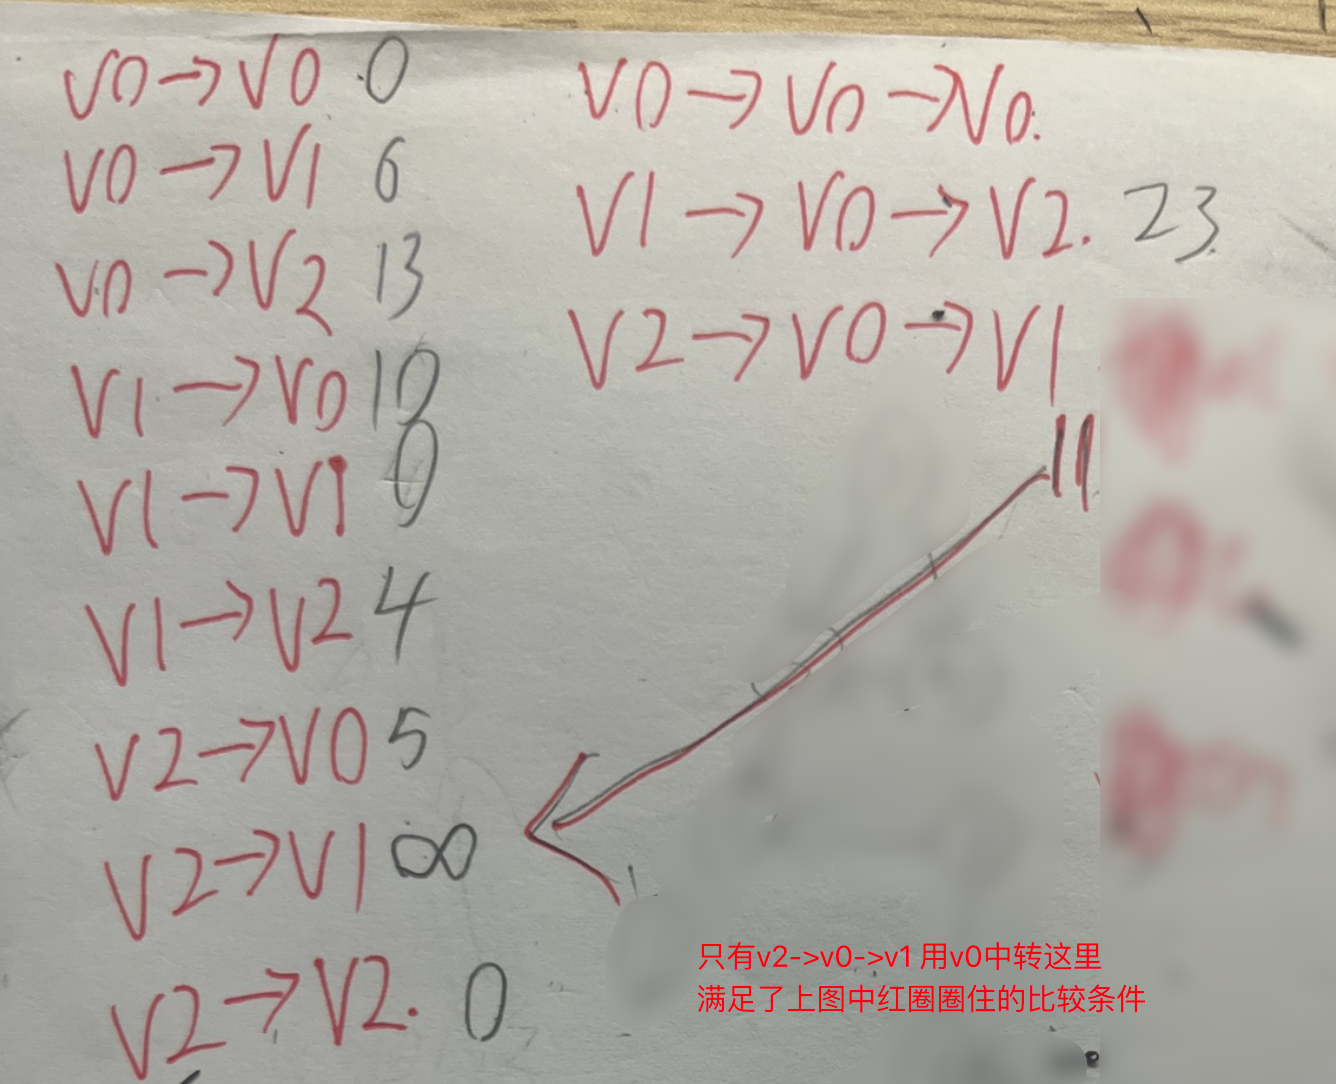 V0→V0 0
V0→V1 6
V0→V2 13
V1→V0 10
V1→V1 0
V1→V2 4
V2→V0 5
V2→V1 ∞
V2→V2. 0
V0→V0→V0.
V1→V0→V2. 23
V2→V0→V1
11
只有v2->v0->v1 用v0中转这里
满足了上图中红圈圈住的比较条件